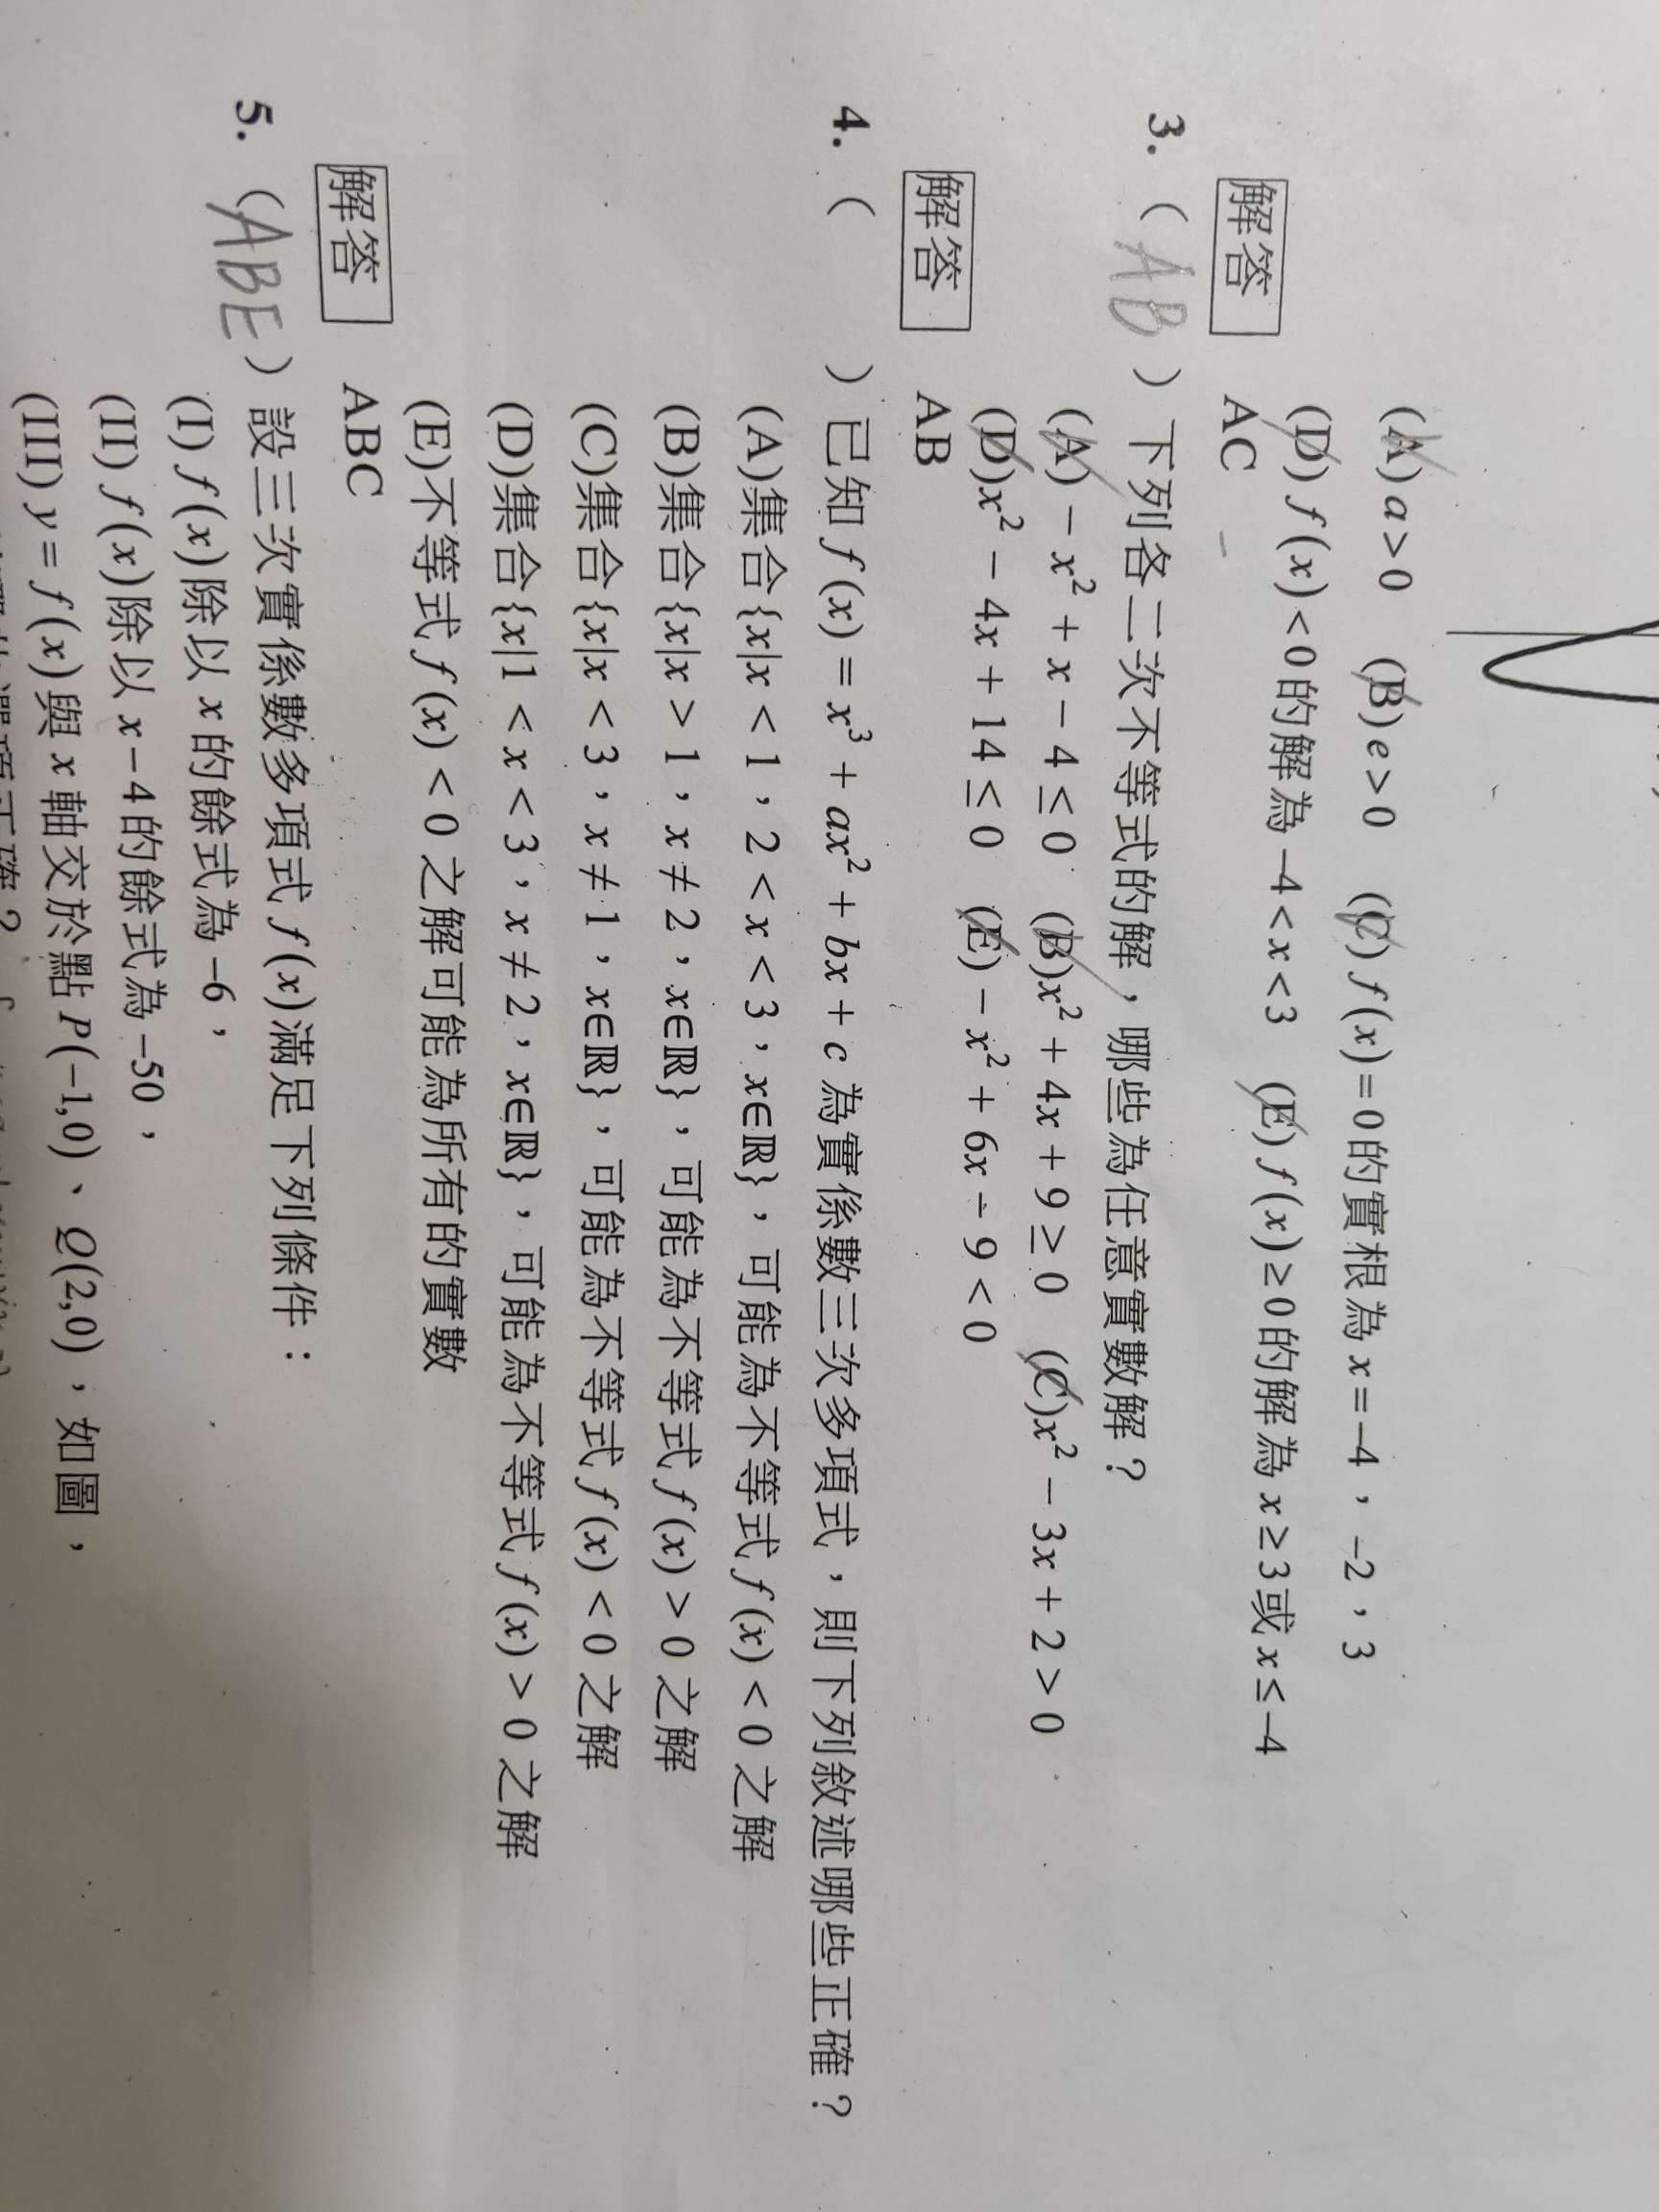 (A) a > 0 (B) e > 0 (C) f (x) = 0的實根為 x = −4，−2，3
(D) f (x) < 0的解為 −4 < x < 3 (E) f (x) ≥ 0的解為 x ≥ 3或 x ≤ −4
解答 AC
3. ( AB ) 下列各二次不等式的解，哪些為任意實數解？
(A) − x² + x − 4 ≤ 0 (B)x² + 4x + 9 ≥ 0 (C)x² − 3x + 2 > 0
(D)x² − 4x + 14 ≤ 0 (E) − x² + 6x − 9 < 0
解答 AB
4. ( ) 已知 f (x) = x³ + ax² + bx + c 為實係數三次多項式，則下列敘述哪些正確？
(A)集合{x|x < 1，2 < x < 3，x∈ℝ}，可能為不等式 f (x) < 0 之解
(B)集合{x|x > 1，x ≠ 2，x∈ℝ}，可能為不等式 f (x) > 0 之解
(C)集合{x|x < 3，x ≠ 1，x∈ℝ}，可能為不等式 f (x) < 0 之解
(D)集合{x|1 < x < 3，x ≠ 2，x∈ℝ}，可能為不等式 f (x) > 0 之解
(E)不等式 f (x) < 0 之解可能為所有的實數
解答 ABC
5. (ABE) 設三次實係數多項式 f (x)滿足下列條件：
(I) f (x)除以 x 的餘式為 −6，
(II) f (x)除以 x−4的餘式為 −50，
(III) y = f (x)與 x 軸交於點 P(−1,0)、Q(2,0)，如圖，
選項正確？